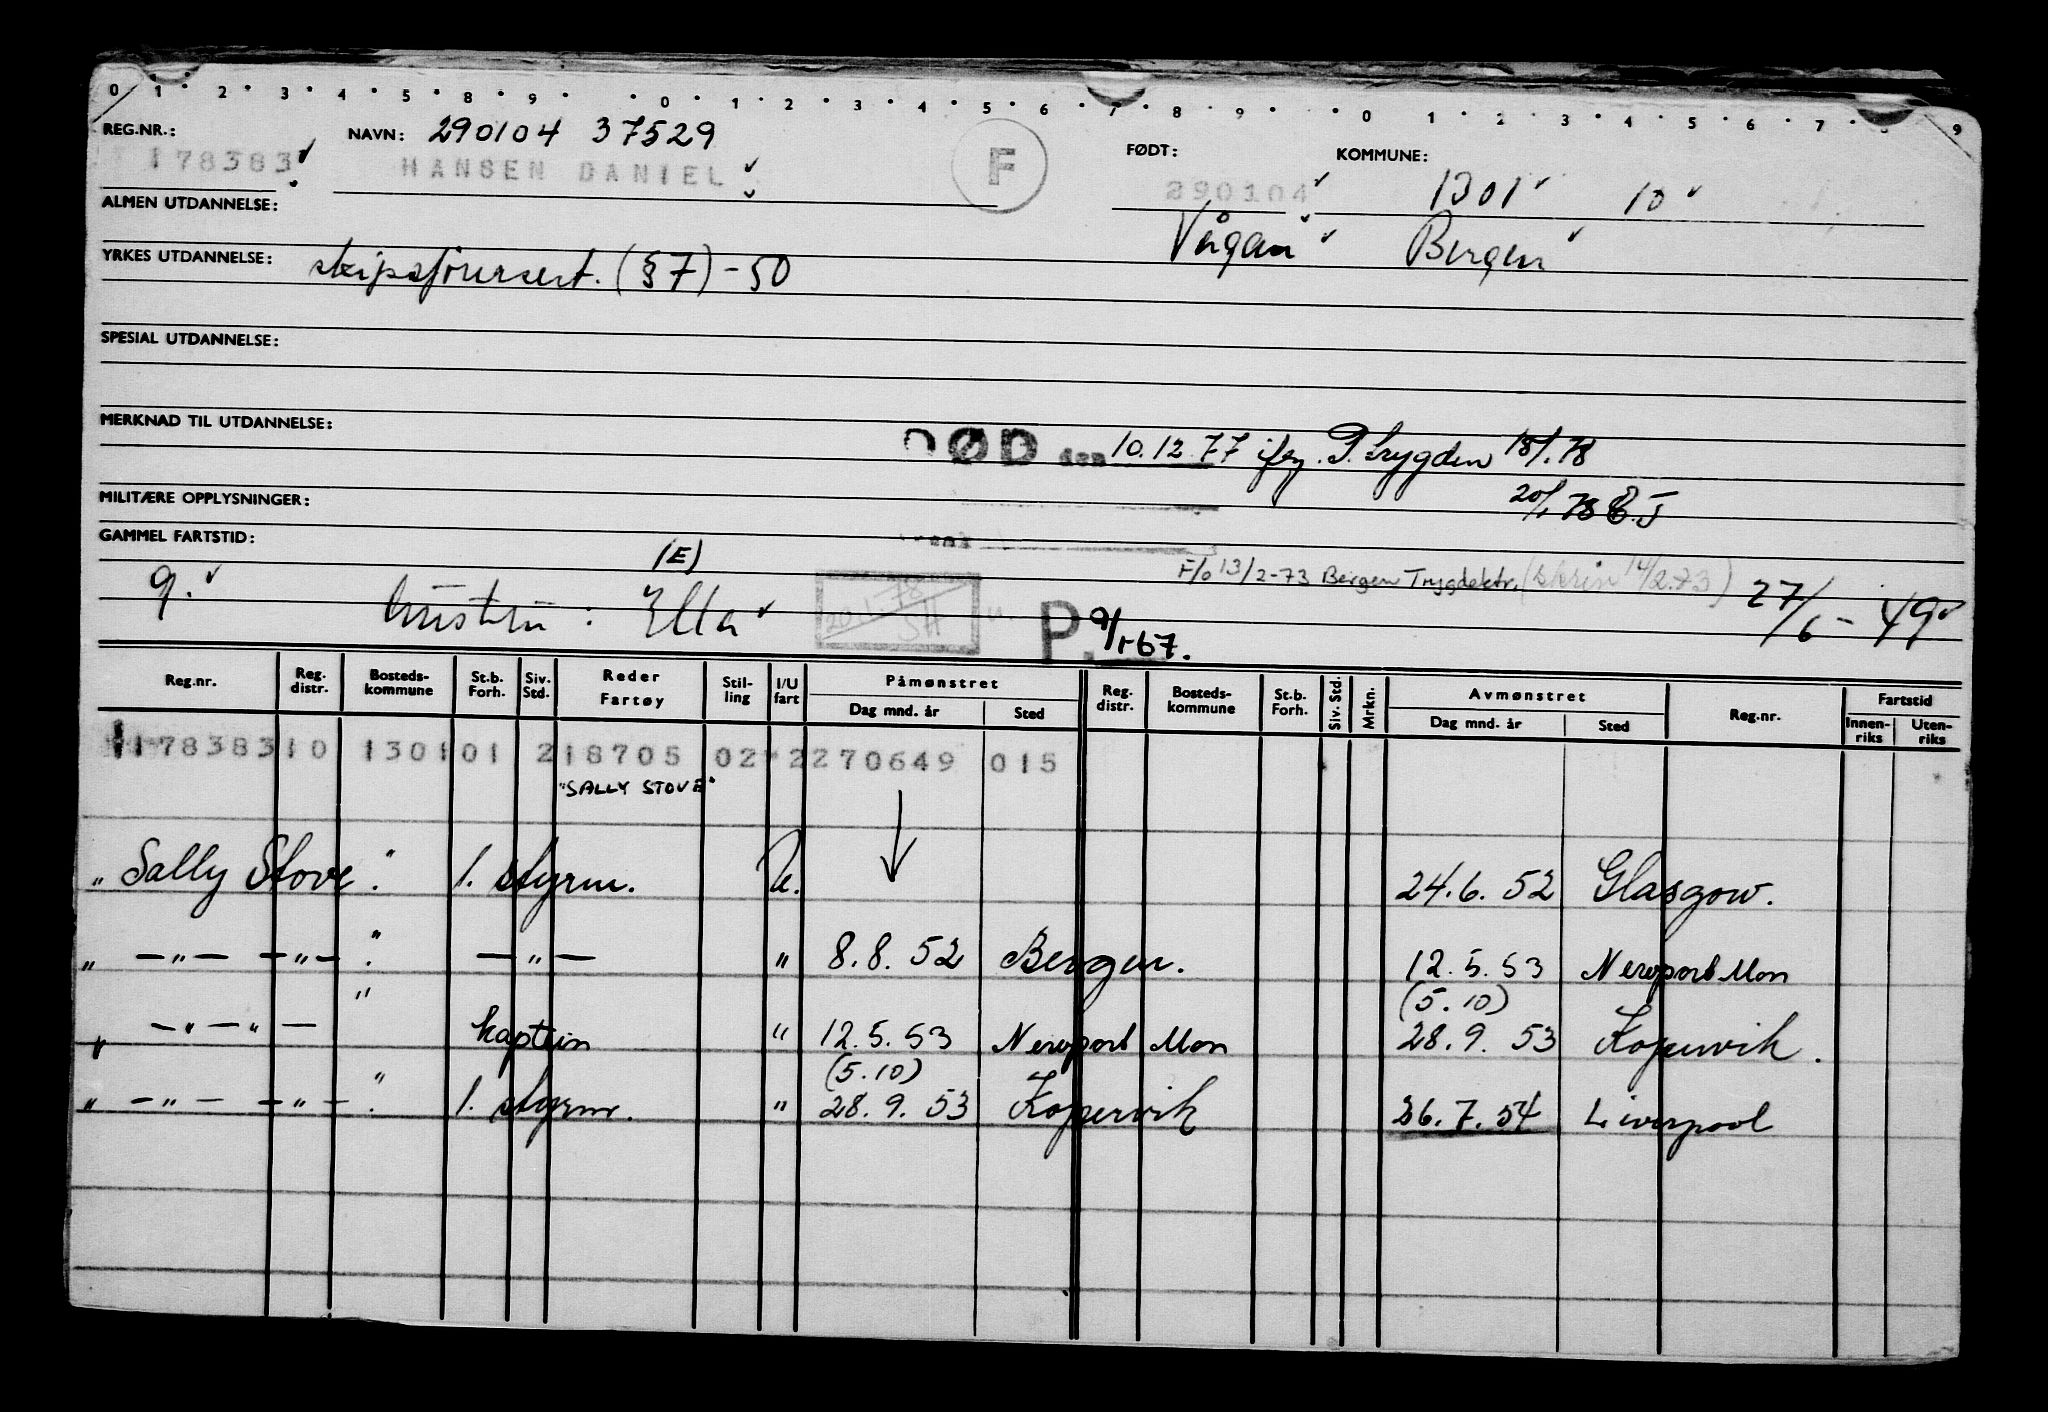 0 1 2 3 4 5 8 9 0 1 2 3 4 5 6 7 8 9 0 1 2 3 4 5 6 7 8 9
REG.NR.: NAVN: 290104 37529 FØDT: KOMMUNE:
178383 HANSEN DANIEL F 290104 1301 10
ALMEN UTDANNELSE: Vågan Bergen
YRKES UTDANNELSE: skipsførersert. (§7) - 50
SPESIAL UTDANNELSE:
MERKNAD TIL UTDANNELSE:
DØD den 10.12.77 iføg. P. trygden 18/1.78
MILITÆRE OPPLYSNINGER: 20/1 78 E.J
GAMMEL FARTSTID:
(E) F/o 13/2-73 Bergen Trygdektr. (skrin 14/2.73)
9. hustru: Ella 20.1.78 SH P. 9/1-67. 27/6-49
Reg.nr. Reg. distr. Bosteds-kommune St.b. Forh. Siv. Std. Reder Fartøy Stil-ling I/U fart Påmønstret Reg. distr. Bosteds-kommune St.b. Forh. Siv. Std. Mrkn. Avmønstret Reg.nr. Fartstid
Dag mnd. år Sted Dag mnd. år Sted Innen-riks Uten-riks
178383 10 1301 01 2 18705 02 2 270649 015
"SALLY STOVE"
" Sally Stove " . 1. styrm. U. 24.6.52 Glasgow.
" — " — — " — " . — " — " 8.8.52 Bergen. 12.5.53 Newport Mon
(5.10)
" — " — " — " kaptein " 12.5.53 Newport Mon 28.9.53 Kopervik.
(5.10)
" — " — — " — " . 1. styrm. " 28.9.53 Kopervik 26.7.54 Liverpool